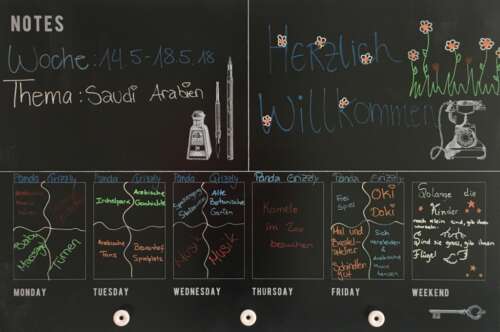 NOTES
Woche: 14.5-18.5.18
Thema: Saudi Arabien
Herzlich
Willkommen
Panda Grizzly
Baby
Massage
Turnen
MONDAY
Panda Grizzly
Arabische
Geschichte
Arabische
Tanz
Bauernhof
Spielplatz
TUESDAY
Panda Grizzly
Alte
Botanische
Garten
Musik
Musik
WEDNESDAY
Panda Grizzly
Kamele
im Zoo
besuchen
THURSDAY
Panda Grizzly
Frei
Spiel
Oki
Doki
Mal und
Bastel-
atelier
Schindlergut
Sich
verkleiden
& arabische
FRIDAY
Solange die
Kinder
noch klein sind, gib ihnen
Wurzeln.
Sind sie gross, gib ihnen
Flügel
WEEKEND